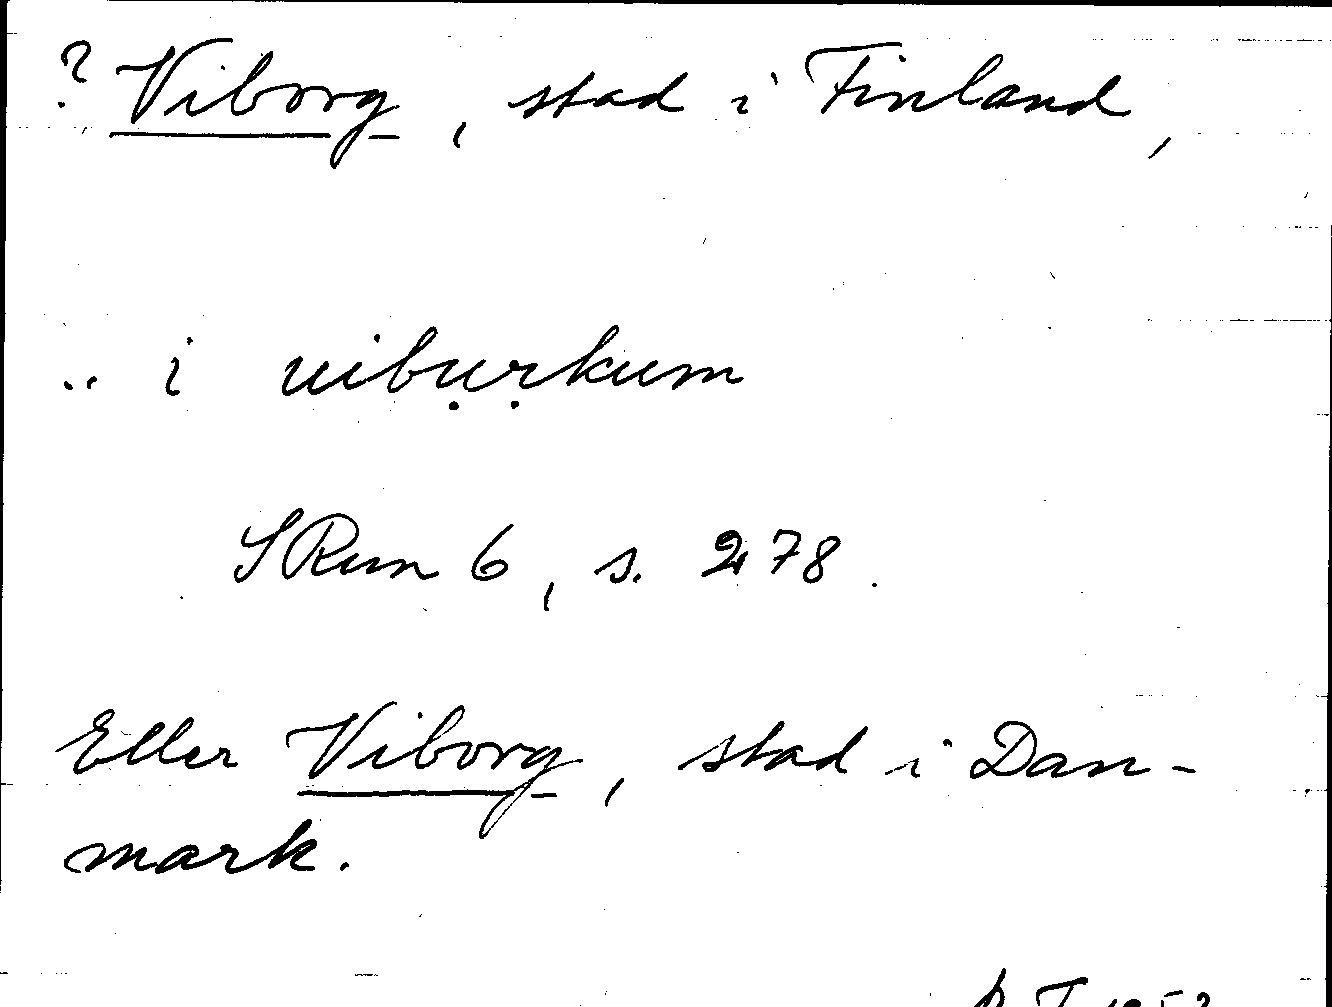 ? Viborg, stad i Finland,
.. i uibụṛkum
SRun 6, s. 278.
Eller Viborg, stad i Dan-
mark.